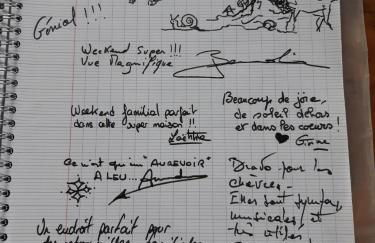 Génial !!!
Weekend Super !!!
Vue Magnifique
Weekend familial parfait
dans cette super maison !!
Laetitia
Beaucoup de joie,
de soleil dehors
et dans les coeurs !
Ce n'est qu'un "AUREVOIR"
A LEU...
Bravo pour les
chèvres -
Elles sont sympas,
musicales et
très utiles !
Un endroit parfait pour